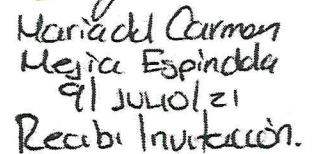 Maria del Carmen
Mejia Espindola
9/JULIO/21
Recibi Invitación.